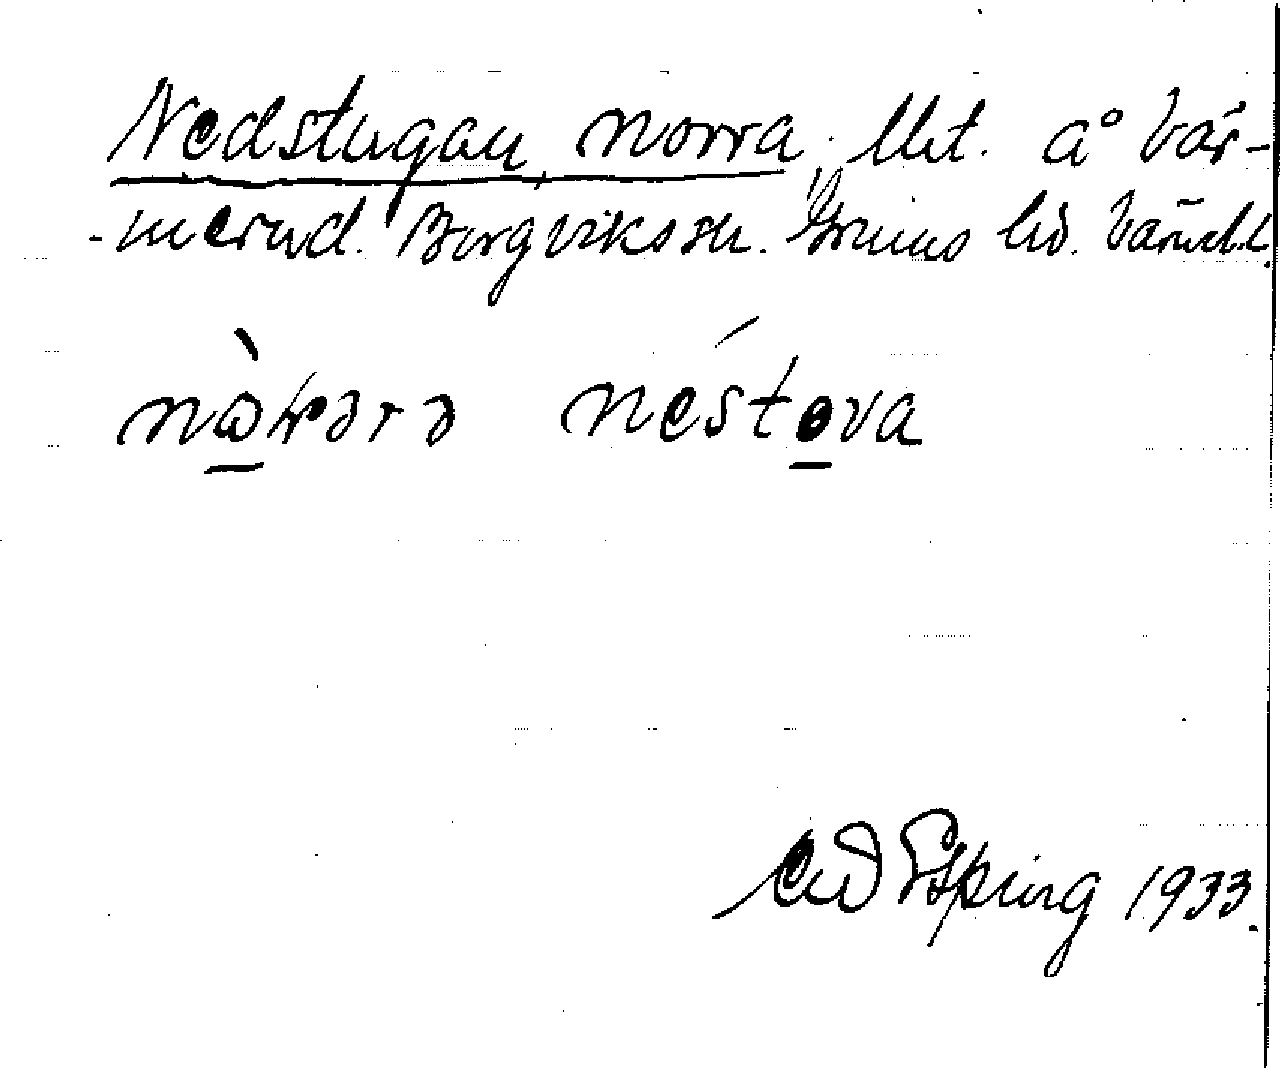 Nedstugan, norra, llht. å Vär-
-merud. Borgviks sn. Grums hd. Värml.
nǫ̀rərə néstova
Espling 1933.